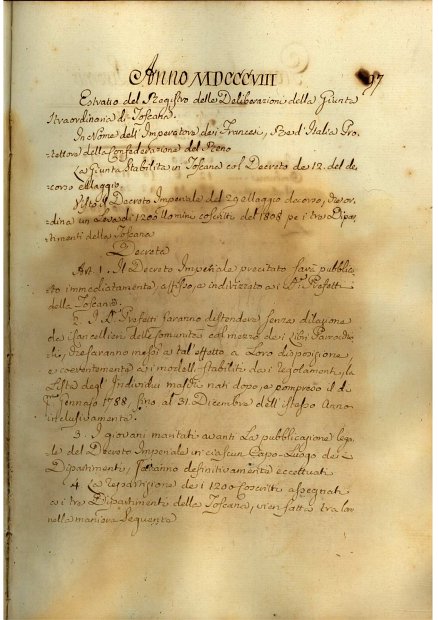 Anno MDCCCVIII
97
Estratto del Registro delle Deliberazioni della Giunta
Straordinaria di Toscana.
In Nome dell'Imperatore dei Francesi, Re d'Italia Pro-
tettore della Confederazione del Reno
La Giunta Stabilita in Toscana col Decreto de 12. del de-
corso Maggio.
Visto il Decreto Imperiale del 29 Maggio decorso, che or-
dina un Leva di 1200 Uomini coscritti del 1808 pe i tre Dipar-
timenti della Toscana
Decreta
Art. 1. Il Decreto Imperiale precitato sarà pubblica-
to immediatamente, affisso, e indirizzato ai SS.ri Prefetti
della Toscana.
2. I SS.ri Prefetti faranno distendere senza dilazione
dai Cancellieri delle Comunità col mezzo dei Libri Parrocchia-
li, che saranno messi a tal'effetto a Loro disposizione,
e coerentemente ai modelli stabiliti dai Regolamenti, la
Lista degl'Individui maschi nati dopo, e compreso il dì
P.mo Gennajo 1788, fino al 31. Dicembre dell'istesso Anno
inclusivamente.
3. I giovani maritati avanti La pubblicazione lega-
le del Decreto Imperiale in ciascun Capo-Luogo dei
Dipartimenti, saranno definitivamente eccettuati
4. La repartizione dei 1200 Coscritti assegnati
ai tre Dipartimenti della Toscana, vien fatta tra loro
nella maniera Seguente